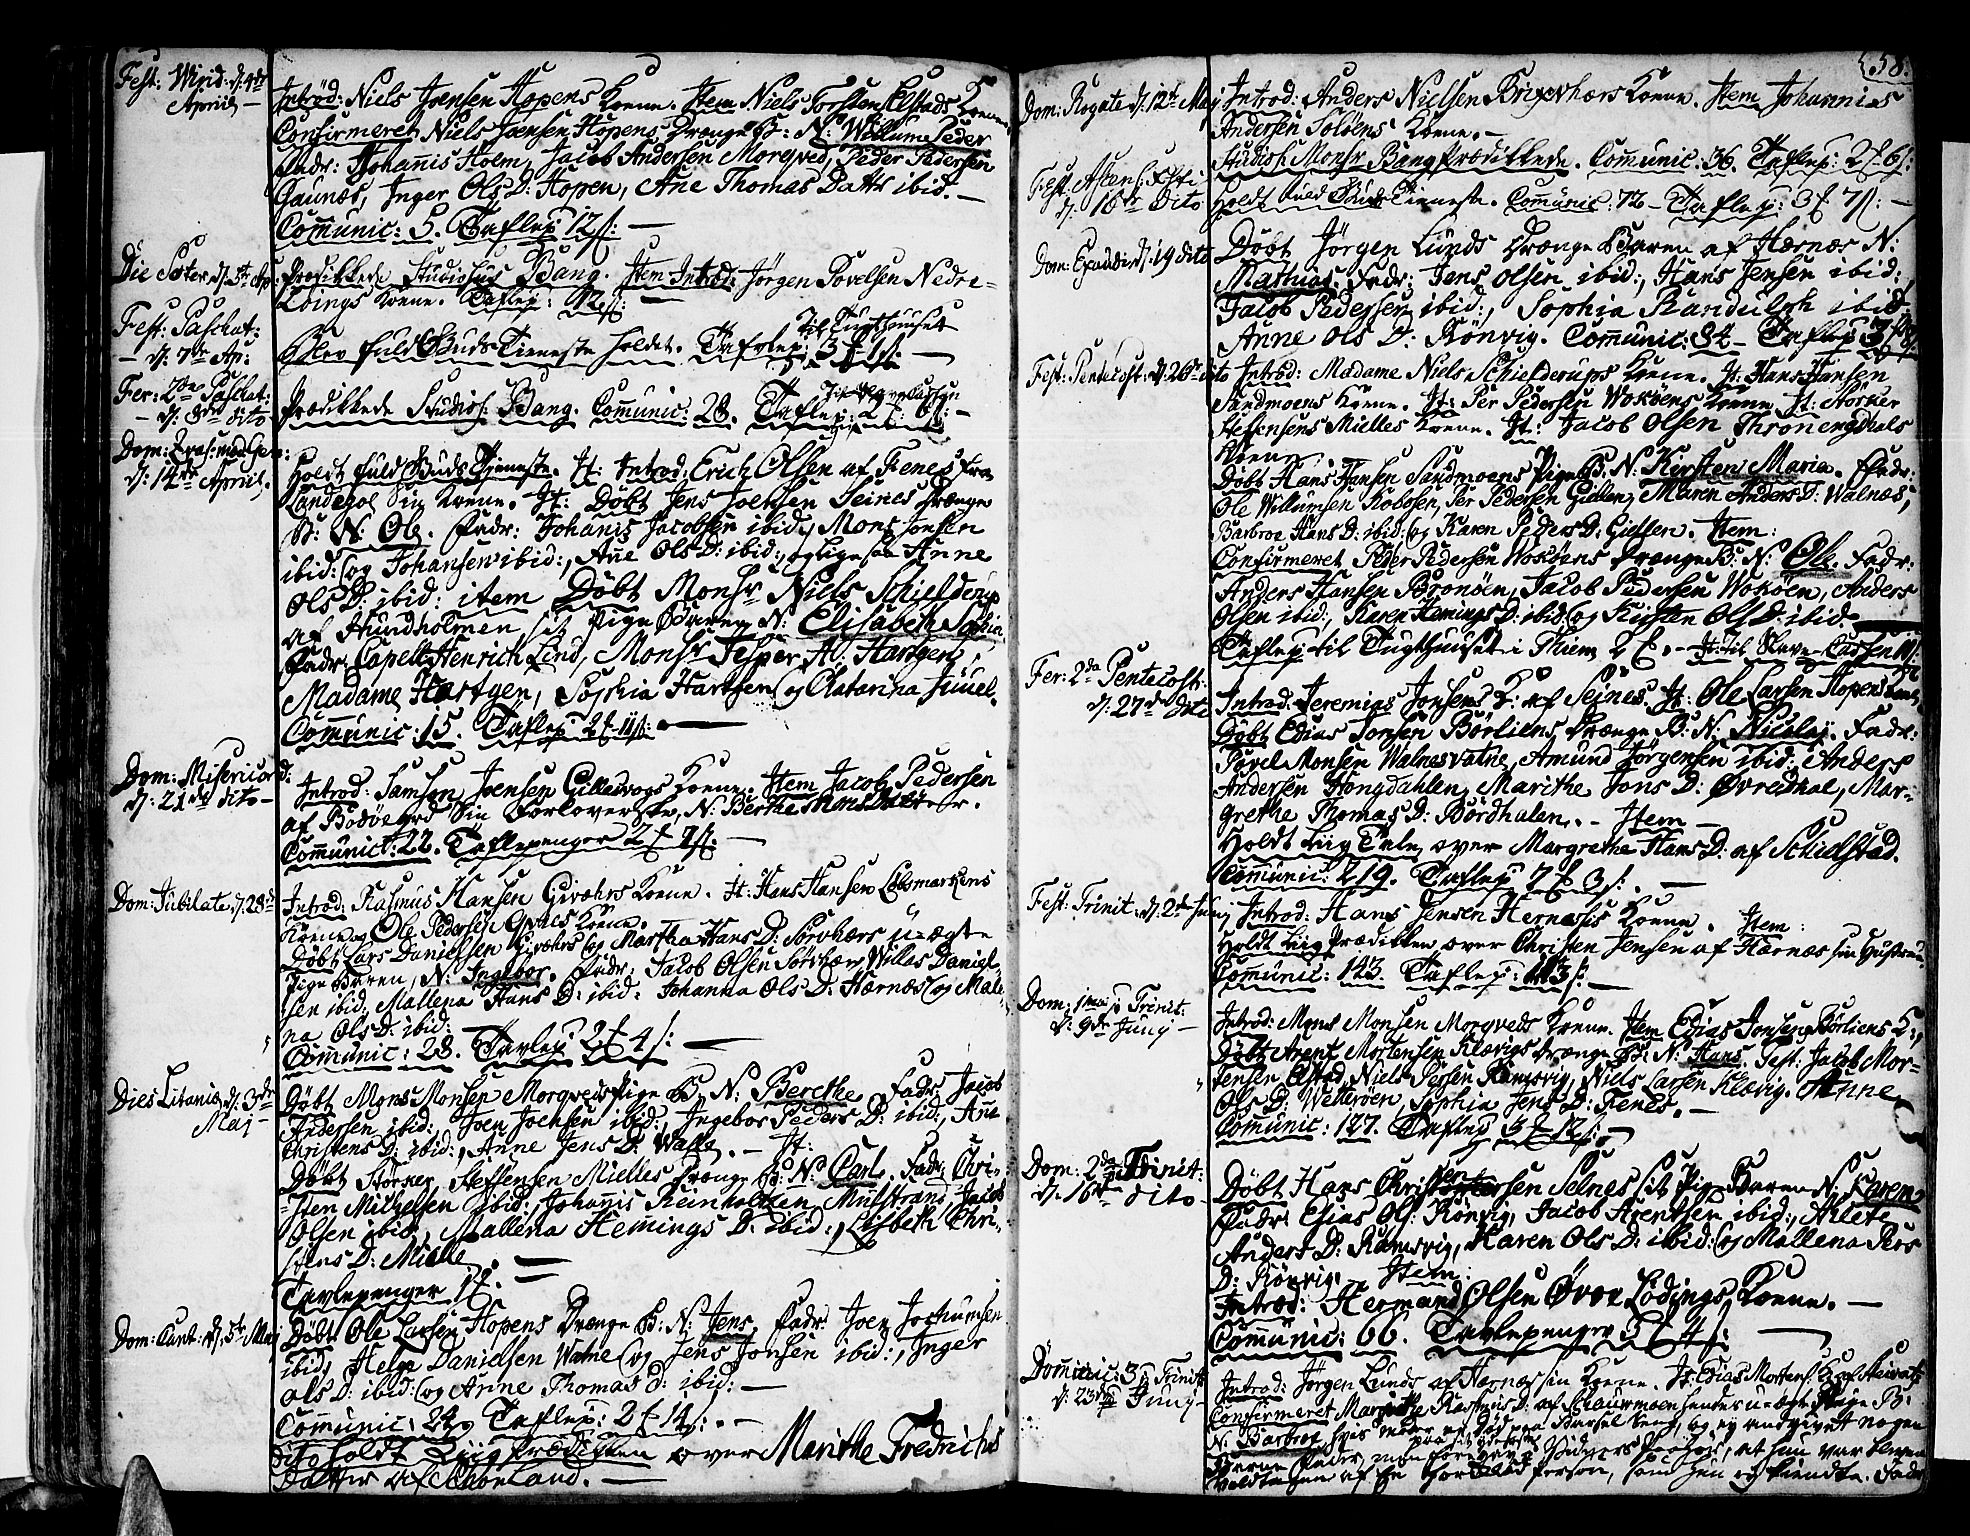 Fest: Wisid: d: 4de
Aprilis —
Introd: Niels Joensen Hopens Koene. Item Niels Torsten Elstads Koene.
Confirmeret Niels Joensen Hopens Drænge B: N: Willum Peder
Fadr: Johanis Holm, Jacob Andersen Morqved, Peder Pedersen
Gaunæs, Inger Ols D: Hopen, Ane Thomas Datter ibid. —
Comunic: 5. Taflep: 12 s: —
Die Sater d: 5te Ap: Prædikkede Studiosus Bang. Item Introd: Jørgen Povelsen Nedre-
Lødings Koene. Taflep: 12 s: —
Fest: Paschat:
— d: 7de Ap:
Til Tugthuuset
Blev fuld Guds Tieneste holdet. Taflep:
Fer: 2da Paschat:
— d: 8de dito
Prædikkede Studios: Bang. Comunic: 28. Taflep:
d: 14de April.
Holdt fuld Guds Tjeneste. It: Introd: Erich Olsen af Fenes fra
Landegod Sin Koene. It: Døbt Jens Joensen Seines Drænge
B: N: Ole. Fadr: Johanis Jacobsen ibid, Mons Jonsen
ibid: og Johansen ibid:, Ane Ols D: ibid: og ligesaa Anne
Ols D: ibid: item Døbt Monsr Niels Schielderup
af Hundholmen sit Pige Baren N: Elisabeth Sophia,
Fadr: Capell: Henrich Lind, Monsr Jesper H: Hartgen,
Madame Hartgen, Sophia Hartgen og Chatarina Juuel.
Communic: 15. Taflep 2 f 11 s: —
Dom: Misericord:
d: 21de dito —
Introd: Samson Joensen Gillesvogs Koene. Item Jacob Pedersen
af Bodøegrd Sin Forloverske, N: Berthe Mons Datter.
Comunict: 22. Taflepenger 2 f
Dom: Jubilate d: 28de
Introd: Rasmus Hansen Givæhrs Koene. It: Hans Hansen Løbsmarkens
Koene og Ole Pedersen Koene.
Døbt Lars Danielssen Givæhrs og Martha Hans D: Sørvhærs u-ægte
Pige Baren, N: Ingebor. Fadr: Jacob Olsen Sørvhær Willas Daniel-
sen ibid, Mallena Hans D: ibid: Johanna Ols D: Hernæs og Male-
na Ols D: ibid: —
Comunic: 28. Tavlep 2 f 4 s: —
Dies Litania d: 3de
Maj —
Døbt Mons Monsen Morqveds Pige B. N: Berethe Fadr: Jacob
Andersen ibid:, Joen Joensen ibid:, Ingebor Peders D: ibid:, Ane
Christens D: ibid:, Anne Jens D: Walle. — It:
Døbt Størker Steffensen Mielles Drænge B: N: Carl. Fadr: Chri-
sten Mithelsen ibid:, Johanis Reinholtzen Mulstrand, Jacob
Olsen ibid, Mallena Hemings D: ibid:, Lisbeth Chri-
stens D: Mielle. —
Tavlepenger 1 f. —
Dom: Cant: d: 5te Maj
Døbt Ole Larsen Hopens Drænge B: N: Jens. Fadr: Joen Jochumsen
ibid, Helge Danielsen Watne og Jens Jonsen ibid:, Inger
Ols D: ibid: og Anne Thomas D: ibid: —
Comunic: 24. Taflep: 2 f 14 s: —
dito holdt Liigprædikken over Marithe Fredrichs
Datter af Schonland. —
58.
Dom: Rogate d: 12te Maj
Introd: Anders Nielsen Brixvhærs Koene. Item Johannis
Andersen Soløens Koene. —
Studios: Monsr Bang Prædikkede. Comunic: 36. Taflep: 2 f 6 s:
Fest: Ascens: Xsti
d: 16de dito
Holdt fuld Guds Tieneste. Comunic: 72 — Taflep: 3 f 7 s: —
Dom: Exaudi d: 19 dito
Døbt Jørgen Lunds Drænge Baren af Hærnæs N:
Mathias. Fadr: Jens Olsen ibid:, Hans Jensen ibid:
Jacob Pedersen ibid:, Sophia Randulph ibid,
Anne Ols D: Rønvig. Communic: 34 — Taflep
Fest: Pentecost: d: 26de dito
Introd: Madame Niels Schielderups Koene. It: Hans Hansen
Sandmoens Koene. It: Per Pedersen Woxøens Koene It: Størker
Steffensens Mielles Koene. It: Jacob Olsen Thronengdals
Koene.
Døbt Hans Hansen Sandmoens Pige B: N: Kirsten Maria. Fadr:
Ole Willumsen Kobbsen, Per Pedersen Gillen, Maren Anders D: Walnæs,
Barbroe Hans D: ibid: og Karen Peders D: Gillen. Item:
Confirmeret Peder Pedersen Woxøens Drænge B: N: Ole. Fadr:
Anders Hansen Boronøen, Jacob Pedersen Woxøen, Anders
Olsen ibid:, Karen Hemings D: ibid og Kirsten Ols D: ibid —
Taflep til Tugthuuset i Thiem 2 f. — It: til Slave-Cassen
Fer: 2da Pentecost:
d: 27de dito
Introd: Jeremias Jonsens K: af Seines. It: Ole Larsen Hopens
Døbt Edias Jonsen Børliens Drænge B: N: Nicolaj. Fadr:
Povel Monsen Walnesvatne, Amund Jørgensen ibid: Anders
Andersen Hongdahlen, Marithe Jons D: Øvredhal, Mar-
grethe Thomas D: Børdhalen. — Item —
Holdt Liig Tale over Margrethe Hans D: af Schielstad.
Comunic: 219. Taflep 7 f 3 s: —
Fest: Trinit: d: 2de Juny
Introd: Hans Jensen Hernæsis Koene. Item:
Holdt Liig Prædikken over Christen Jensen af Hærnæs sin Hustrue.
Comunic: 143. Taflep:
Dom: 1ma p Trinit.
d: 9de Juny —
Introd: Mons Monsen Morqveds Koene. Item Edias Jonsens Børliens K:,
Døbt Arent Mortensen Kløvigs Drænge B: N: Hans. Test: Jacob Mor-
tensen Elstad, Niels Persen Ramsvig, Niels Larsen Kløvig. Anne
Ols D: Wetterøen, Sophia Jens D: Fenes. —
Comunic: 127. Taflep 3 f 12 s: —
Dom: 2da p Trinit:
d: 16de dito
Døbt Hans Selnes Sit Pige Baren N: Karen,
Fadr: Esias Ols: Rønvig, Jacob Arentsen ibid:, Arlete
Anders D: Ramsvig, Karen Ols D: ibid: og Mallena Pers
D: Rønvig. Item:
Introd: Hermand Olsen Øvre Lødings Koene. —
Comunic: 66. Tavlepenger 3 f 4 s: —
Dominic: 3 p Trinit:
d: 23de Juny —
Introd: Jørgen Lunds af Hærnæs sin Koene. It: Edias Mortens: K: af
Confirmeret Marithe Rasmus D: af Schaurmoen hendes u-ægte Pige B:
N: Barbroe, hvis Moder er død paa Barsel Seng, og ey angivet nogen
Barne Fader, men foregivet, at hun var bleven
voldtagen af En Person, som hun ey kiendte. Fadr: